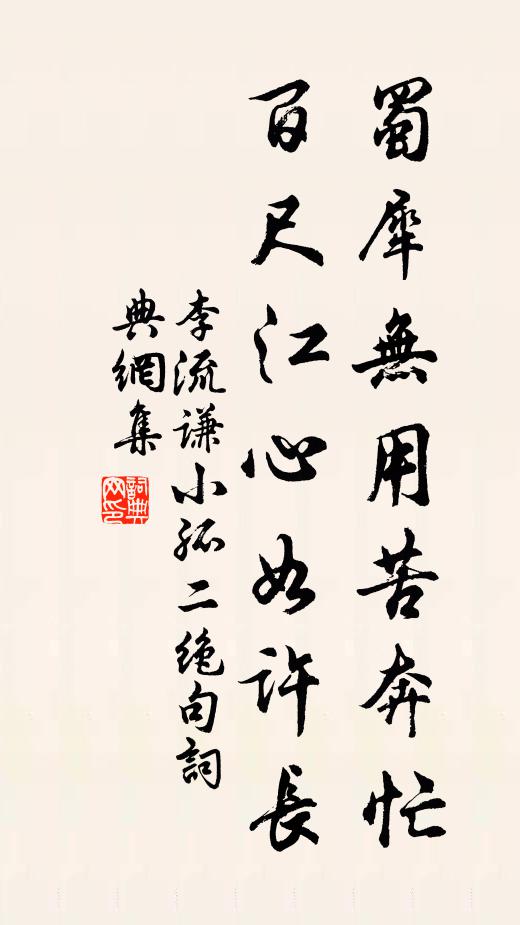 蜀犀無用苦奔忙
百尺江心如許長
李流謙小孤二絶句詞
典網集
詞典
网印